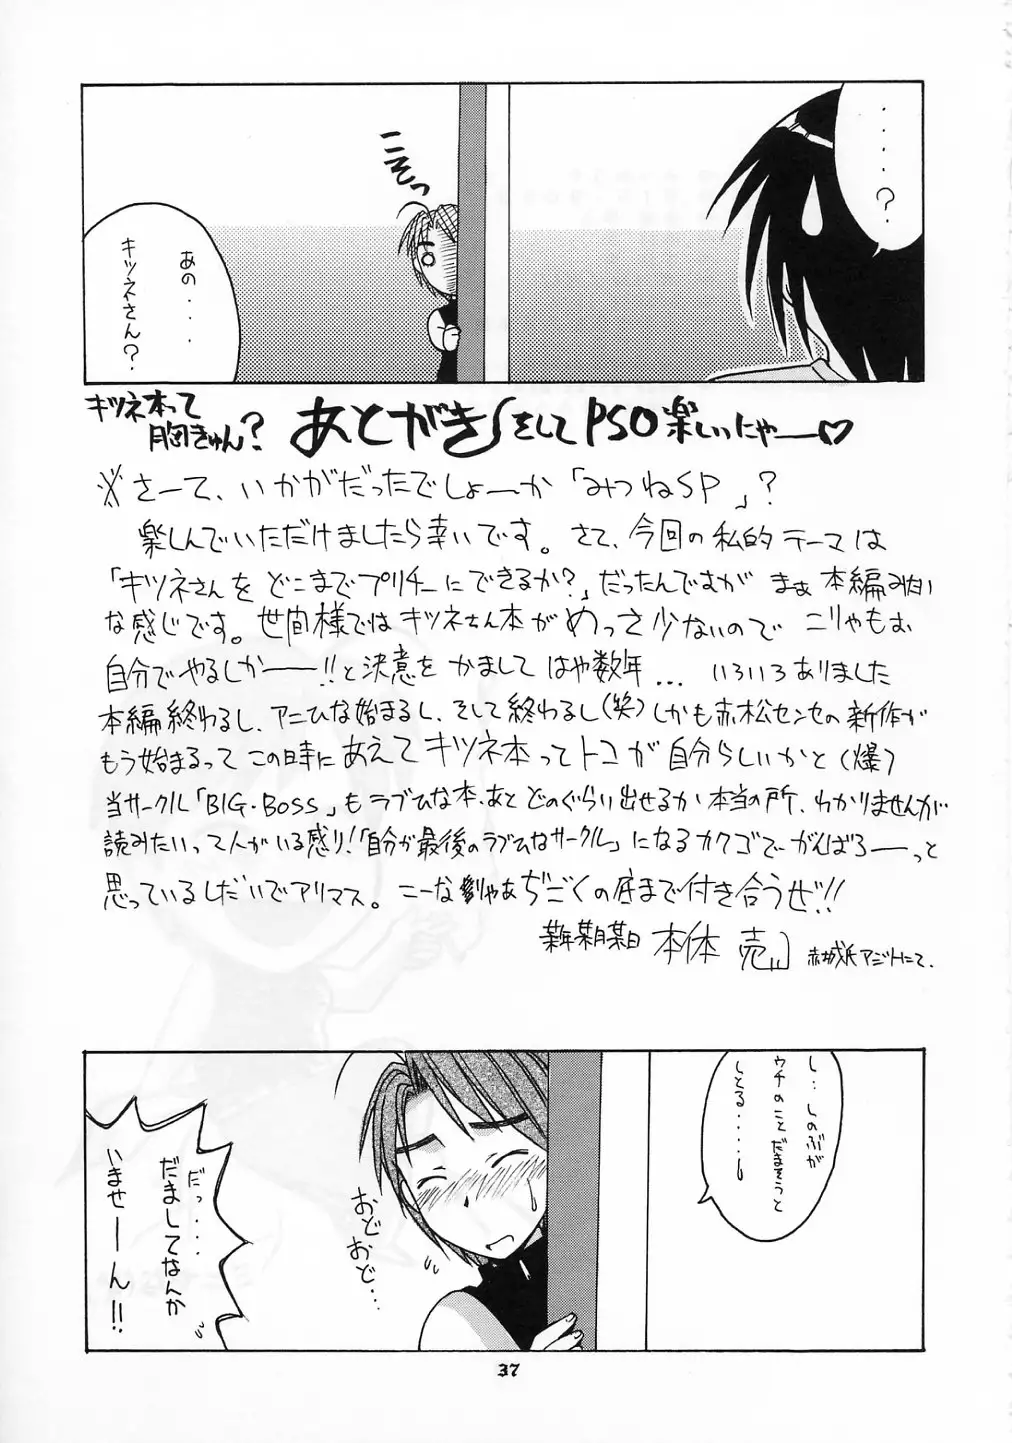 ‥‥‥?
こそっ
あの‥‥
キツネさん?
キツネ本って
胸きゅん?
あとがき~そしてPSO楽しいにゃー♡
※さーて、いかがだったでしょーか「みつねSP」?
楽しんでいただけましたら幸いです。さて、今回の私的テーマは
「キツネさんをどこまでプリチーにできるか?」だったんですがまぁ本編みたい
な感じです。世間様ではキツネさん本がめっさ少ないのでこりゃもぉ
自分でやるしかーー!!と決意をかましてはや数年...いろいろありました
本編終わるし、アニひな始まるし、そして終わるし(笑)しかも赤松センセの新作が
もう始まるってこの時にあえてキツネ本ってトコが自分らしいかと(爆)
当サークル「BIG・BOSS」もラブひな本、あとどのぐらい出せるか本当の所、わかりませんが
読みたいって人がいる限り!「自分が最後のラブひなサークル」になるカクゴでーがんばろーーっと
思っているしだいでアリマス。こーなりゃあぢごくの底まで付き合うぜ!!
某年某月某日 本体 売 赤城氏アジトにて.
し‥しのぶが
ウチのことだまそうと
しとる‥‥‥
おど
おど‥‥
だっ‥‥
だましてなんか
いませーん!!
37